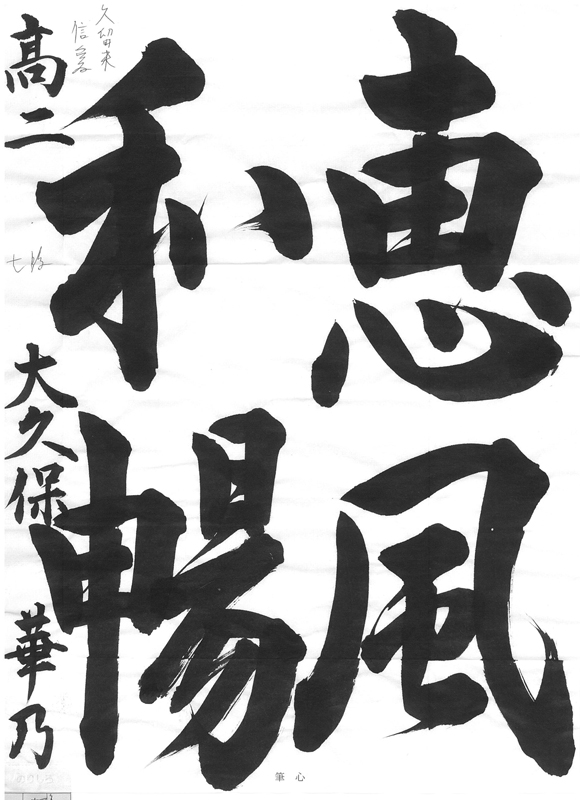 恵風
和暢
高二 大久保 華乃
久留米
信愛
七段
筆心